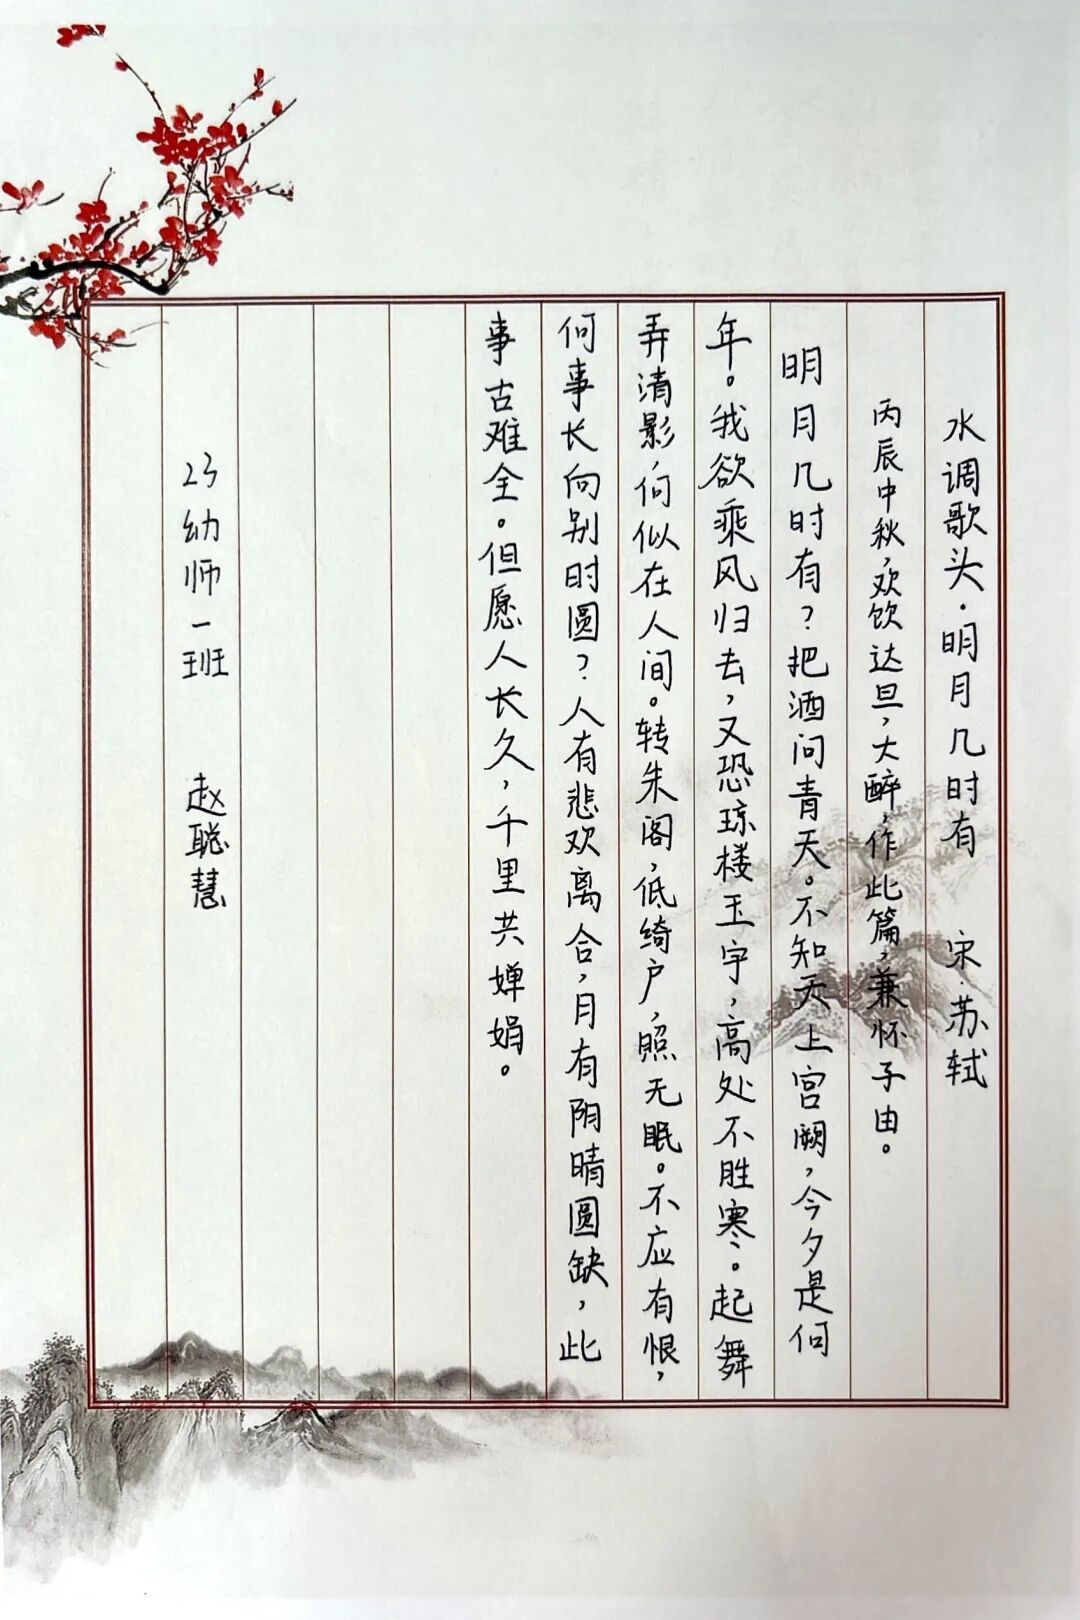 水调歌头·明月几时有 宋·苏轼
丙辰中秋，欢饮达旦，大醉，作此篇，兼怀子由。
明月几时有？把酒问青天。不知天上宫阙，今夕是何
年。我欲乘风归去，又恐琼楼玉宇，高处不胜寒。起舞
弄清影，何似在人间。转朱阁，低绮户，照无眠。不应有恨，
何事长向别时圆？人有悲欢离合，月有阴晴圆缺，此
事古难全。但愿人长久，千里共婵娟。
23幼师一班 赵聪慧